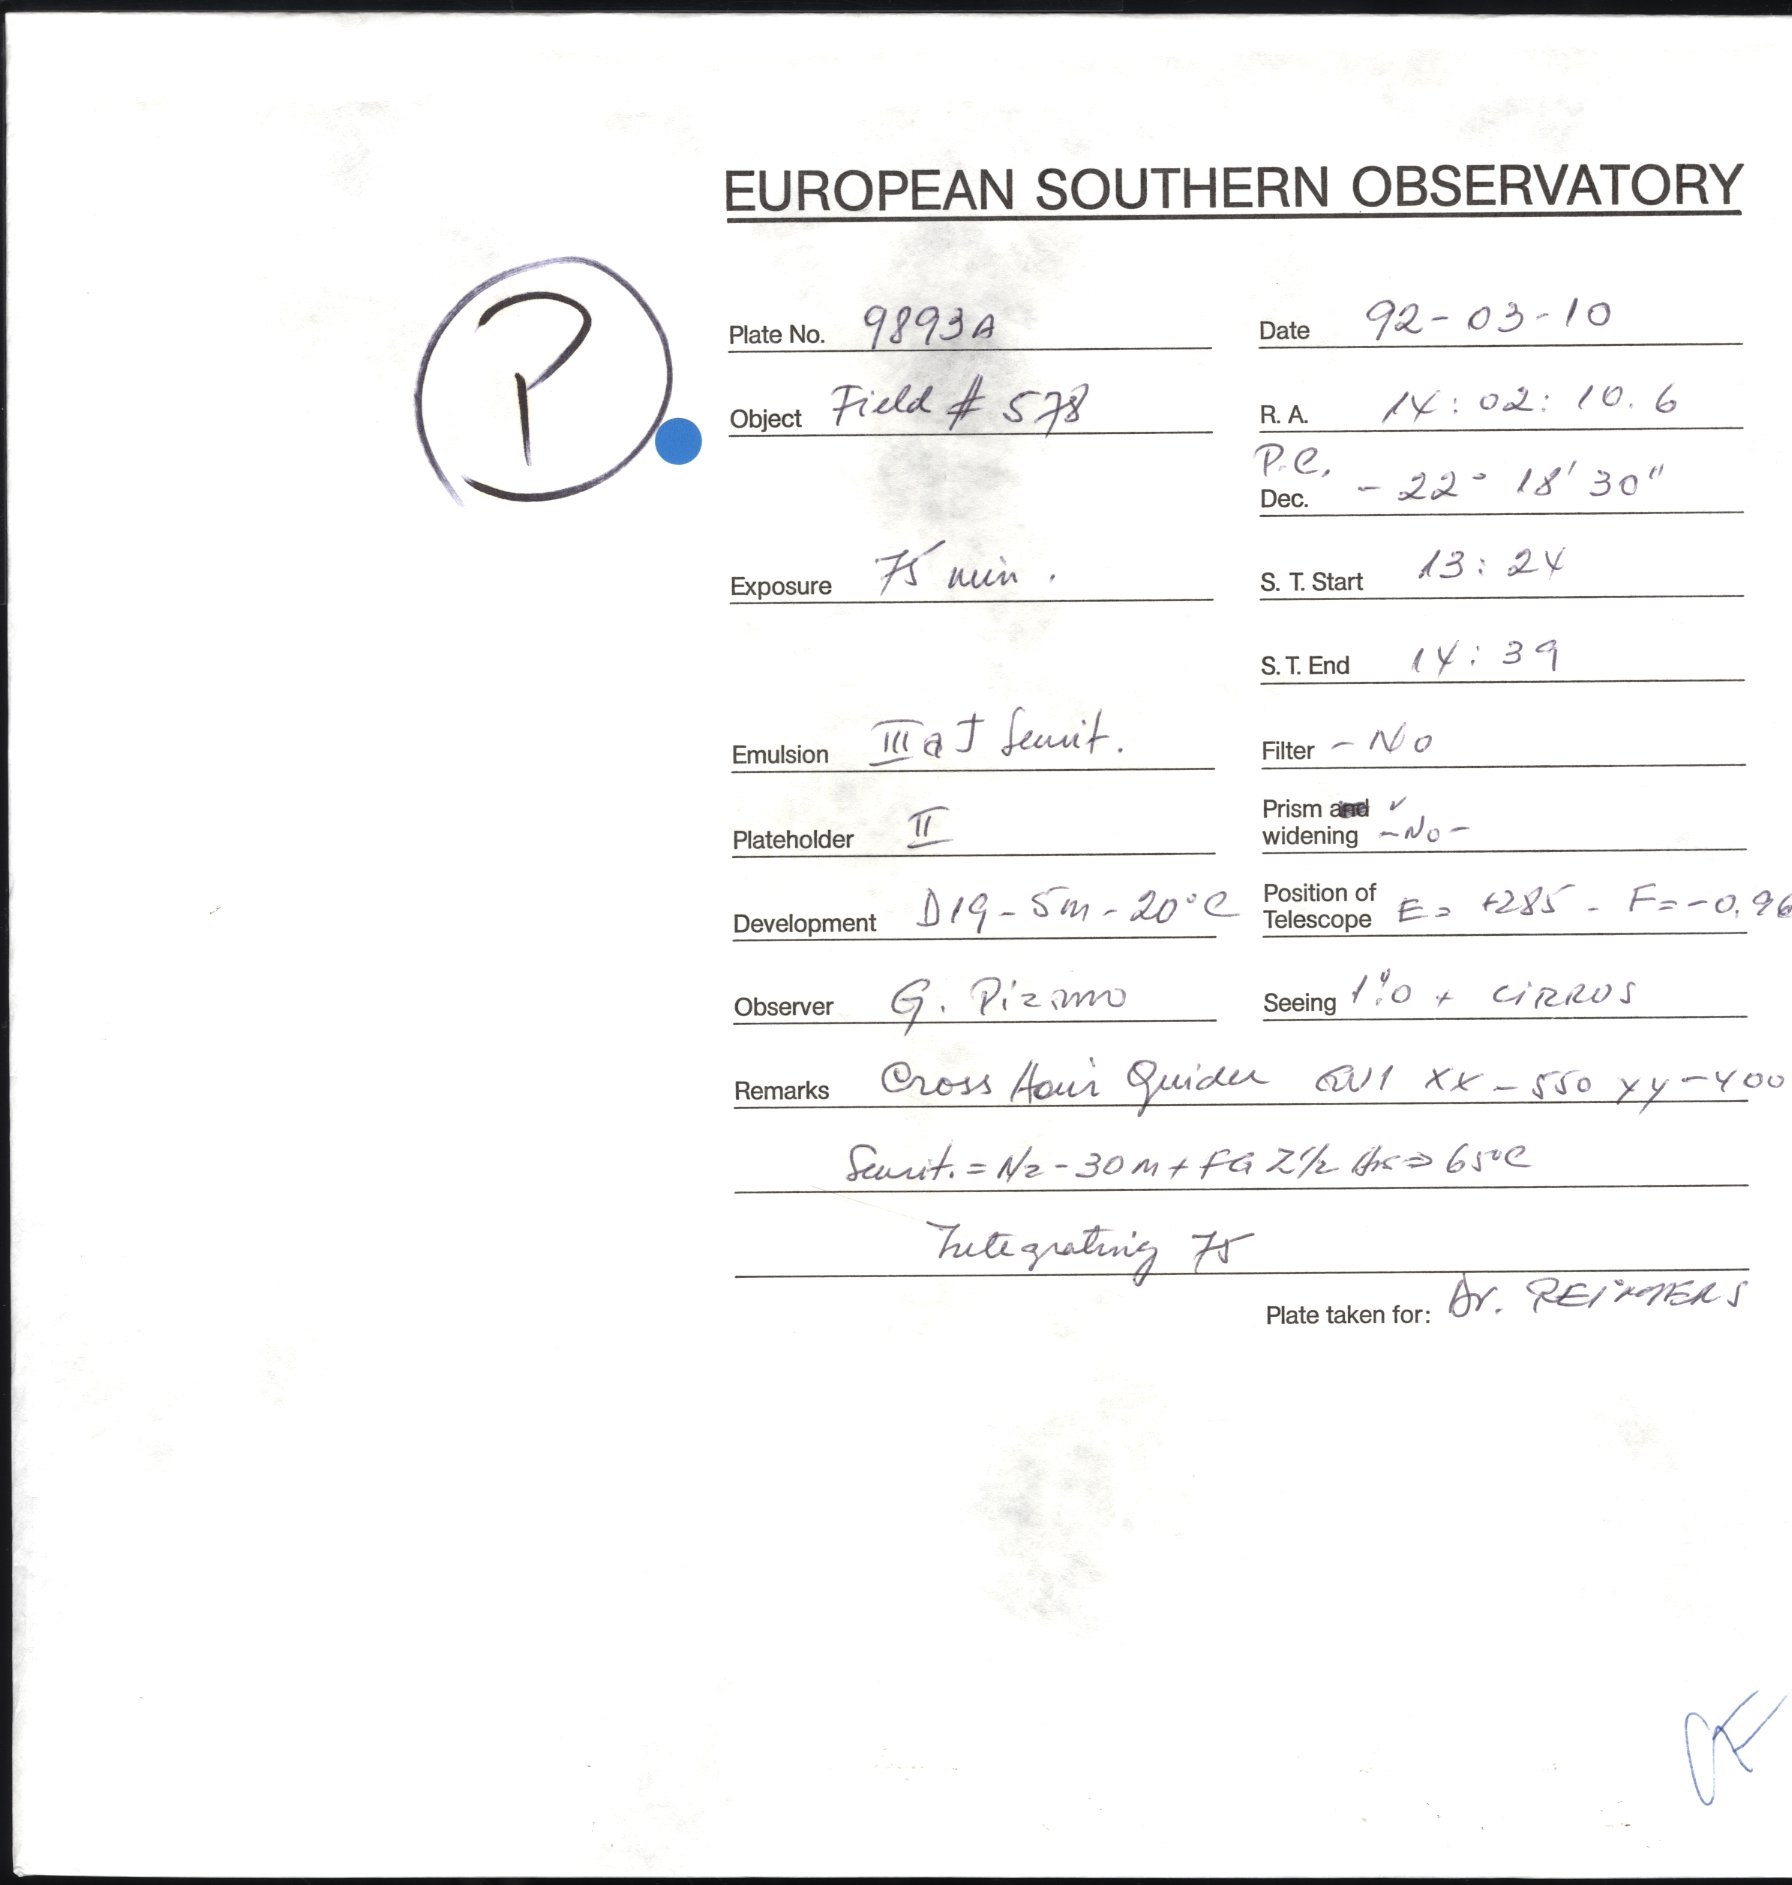 EUROPEAN SOUTHERN OBSERVATORY
P
Plate No. 9893A
Date 92-03-10
Object Field # 578
R. A. 14:02:10.6
P.C.
Dec. - 22° 18' 30"
Exposure 75 min.
S. T. Start 13:24
S. T. End 14:39
Emulsion III a J Sensit.
Filter - No
Plateholder II
Prism and ✓
widening -No-
Development D19-5m-20°C
Position of
Telescope E= +285 - F=-0.96
Observer G. Pizarro
Seeing 1".0 + CIRRUS
Remarks Cross Hair Guider XX-550 YY-400
Sensit. = N2-30m+FG 2 1/2 Hrs => 65°C
Integrating 75
Plate taken for: Dr. REIMERS